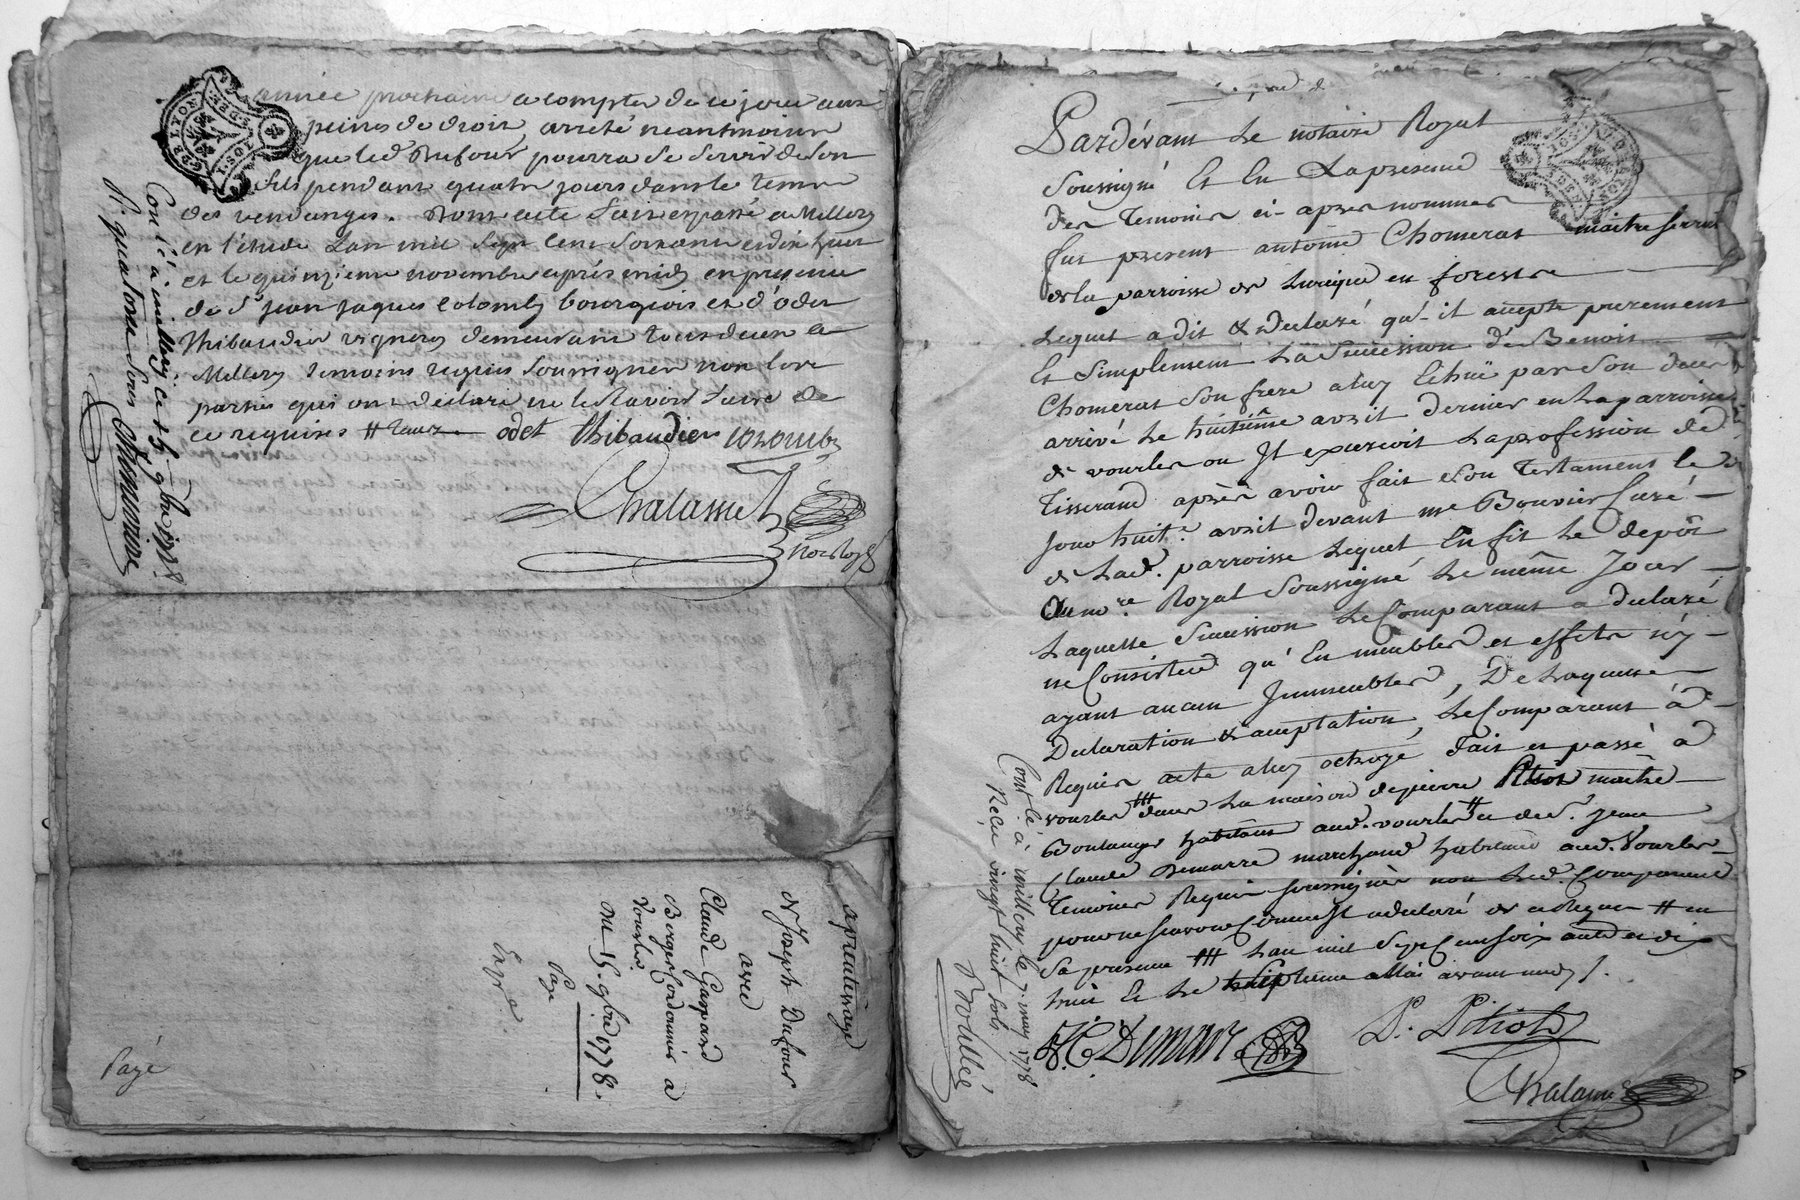 année prochaine a compter de ce jour aux
peines de droit, arreté neantmoins
que led Dufour pourra se servir de son
fils pendant quatre jours dans le tems
des vendanges. Dont acte fait et passé a Millery
en l'étude L'an mil sept cent soixante et dix huit
et le quinzieme novembre après midy en presence
de Sr jean jaques colomby bourgeois et d'odet
thibaudier vigneron demeurant tous deux a
Millery temoins requis soussignés non les
parties qui ont declaré ne le scavoir faire de
ce requises
odet thibaudier colomby
Chalasset
Not. Roy.
Con.lé à millery ce 15 9bre 1778
R. quatorze sols
apprentissage
de Joseph Dufour
avec
Claude Gaspard
Berger Cordonnier à
Vourles
du 15. 9bre 1778.
Payé
Expe.
Payé
Pardévant Le notaire Royal
Soussigné Et En La presence
des Temoins ci-apres nommes
fut present antoine Chomerat maitre
de la parroisse de en forest
Lequel a dit & declaré qu'-il accepte purement
Et Simplement La Succession de Benoit
Chomerat Son frere a luy Echüe par Son deces
arrivé Le huitième avril dernier en La parroisse
de vourles ou Il exercoit La profession de
Tisserand après avoir fait Son Testament le
jour huit.e avril devant me Bouvier Curé
de Lad. parroisse Lequel En fit Le depôt
Au no.re Royal Soussigné Le même Jour
Laquelle Succession Le Comparant a declaré
ne Consister qu'En meubles et effets n'y
ayant aucun Immeubles, De Laquelle
Declaration & acceptation, Le Comparant à
Requis acte a luy octroyé fait et passé à
vourles ⧺ dans La maison de pierre Pitiot maitre
Boulanger habitant aud. vourles & de sr. jean
Claude Demarre marchand habitant aud. Vourles
Temoins Requis soussignés non Led. Comparant
pour ne scavoir Comme Il a declaré de ce Requis ⧺ en
Sa presence ⧺ L'an mil Sept Cent Soixante et dix
huit Et Le Septieme Mai avant midy
J. C. Demare
P. Pitiot
Chalasset
Cont.lé à millery le 7. may 1778
Reçu vingt huit sols